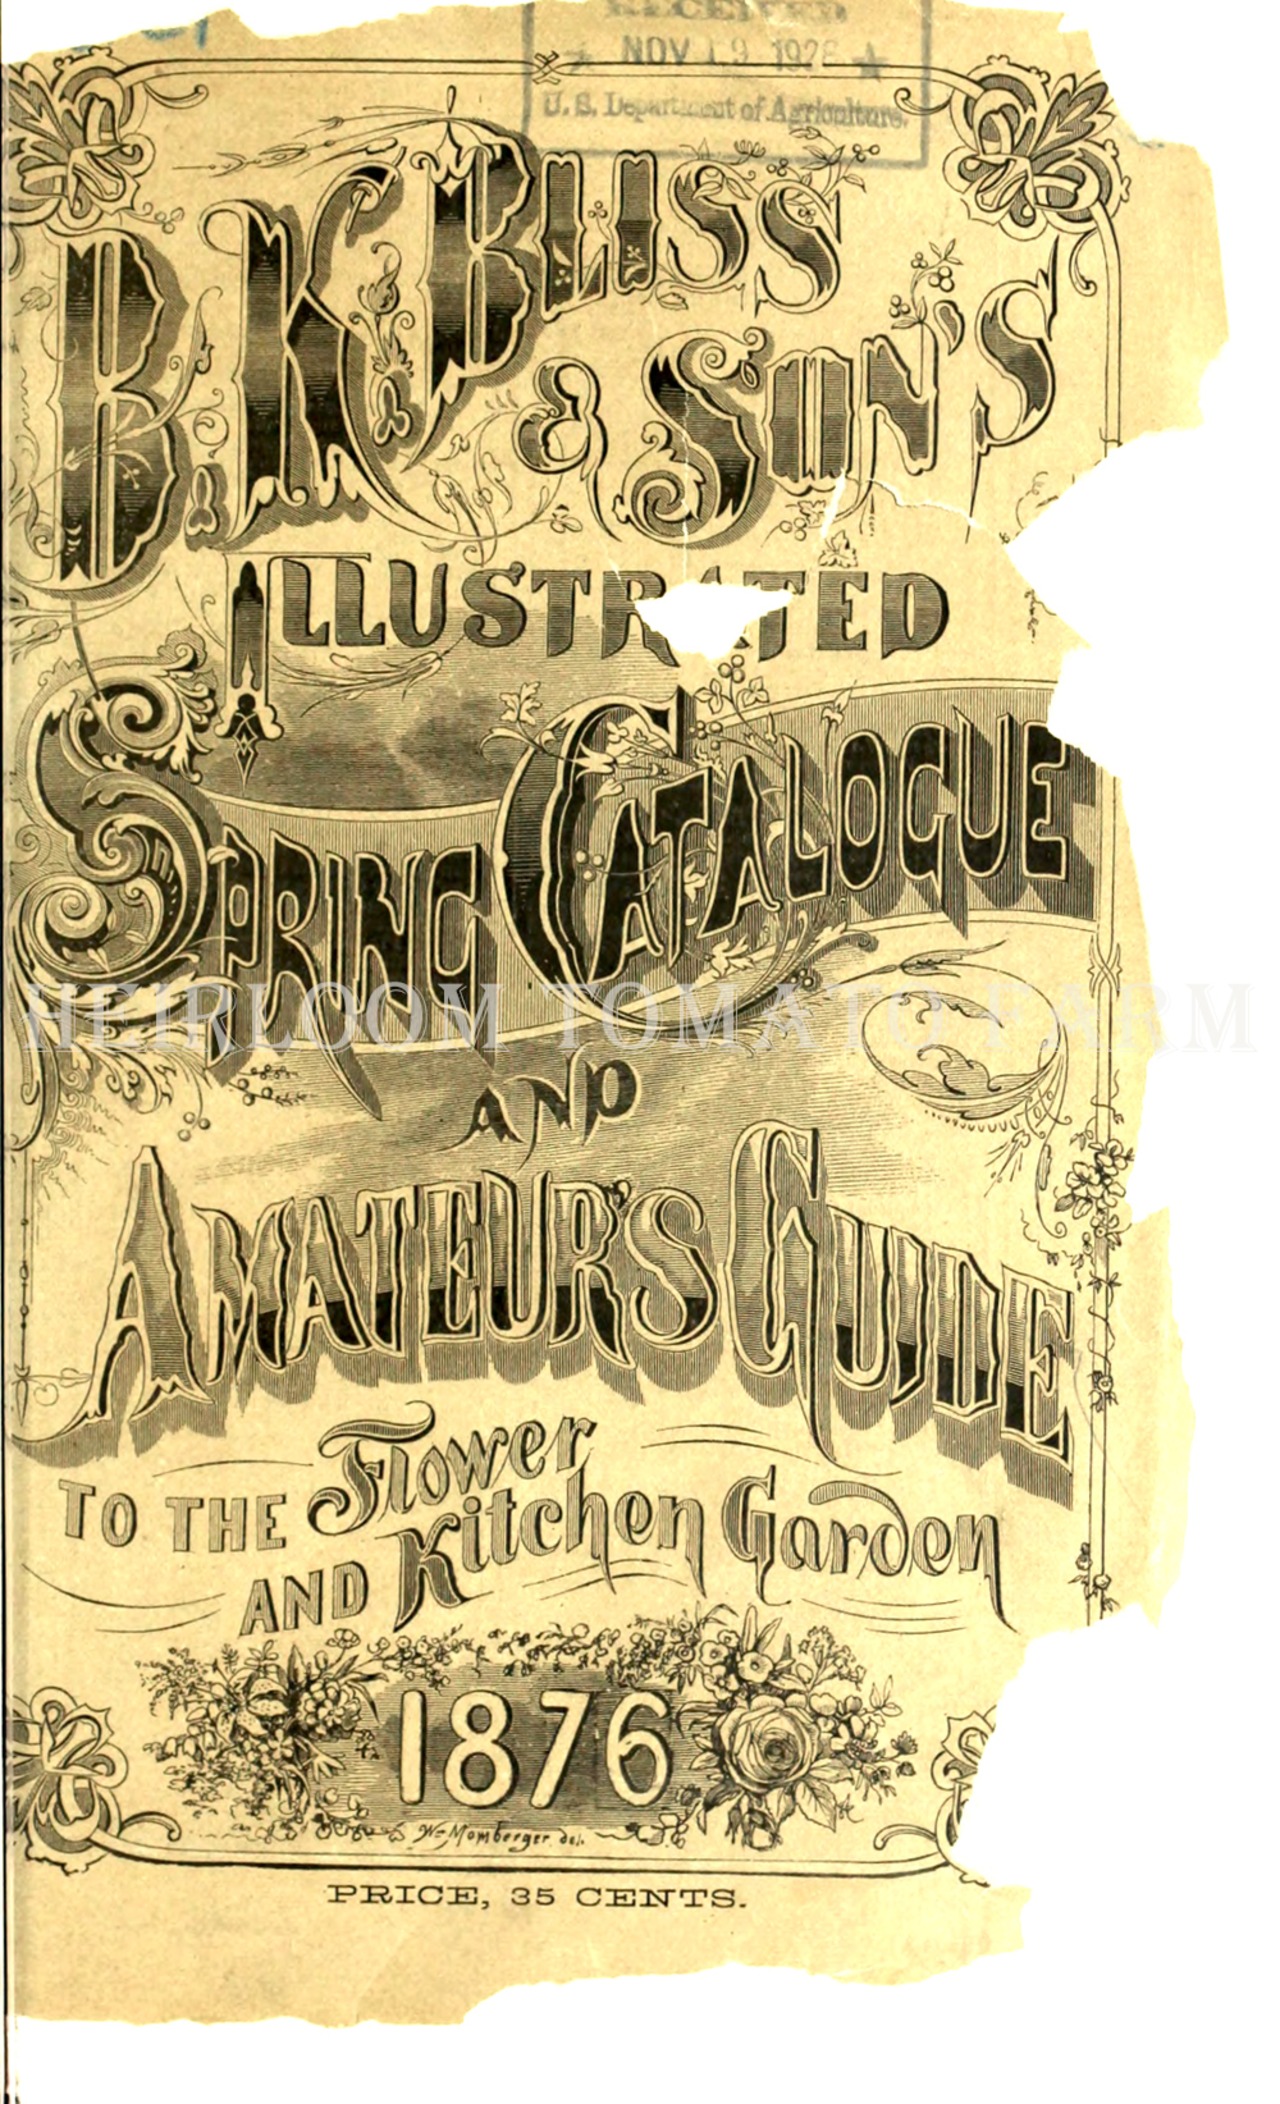 RECEIVED
★ NOV 19 1926 ★
U. S. Department of Agriculture.
B. K. BLISS
& SON'S
ILLUSTRATED
SPRING CATALOGUE
HEIRLOOM TOMATO FARM
AND
AMATEUR'S GUIDE
TO THE Flower
AND Kitchen Garden
1876
Wm Momberger del.
PRICE, 35 CENTS.